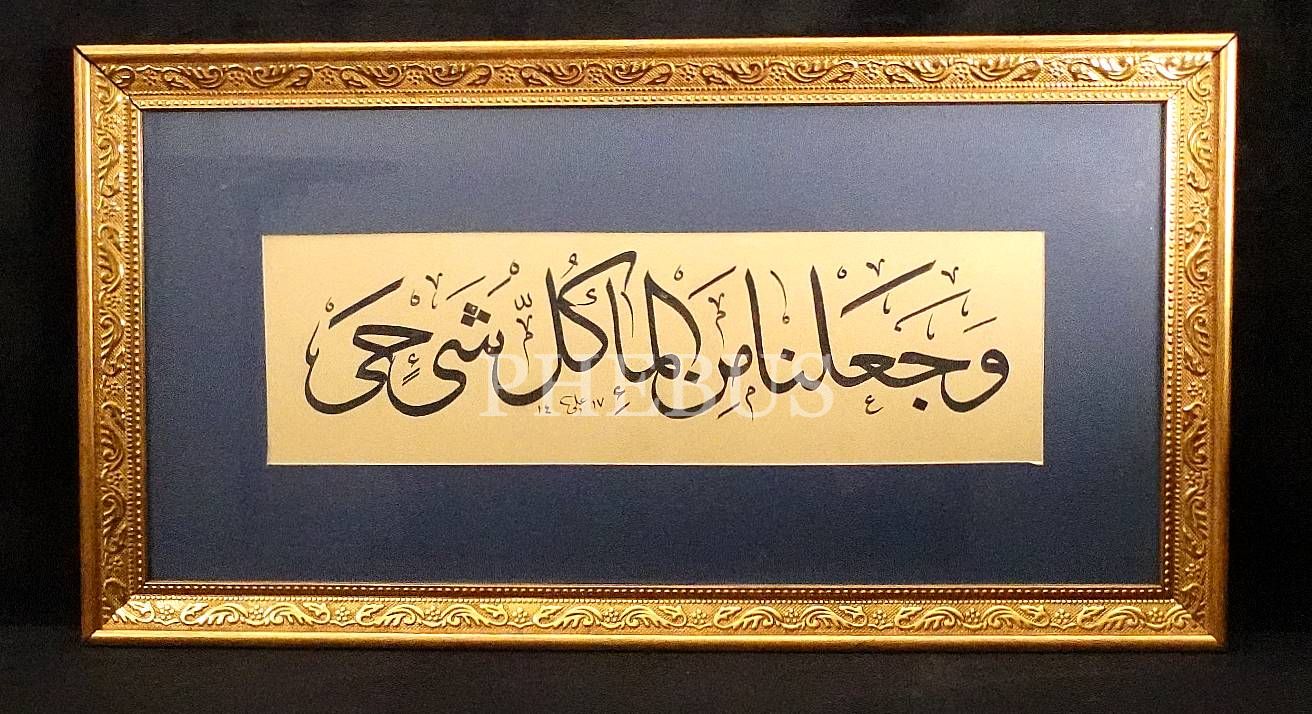 وَجَعَلْنَا مِنَ الْمَاءِ كُلَّ شَیْءٍ حَیٍّ
علی ١٤١٧
PHEBUS